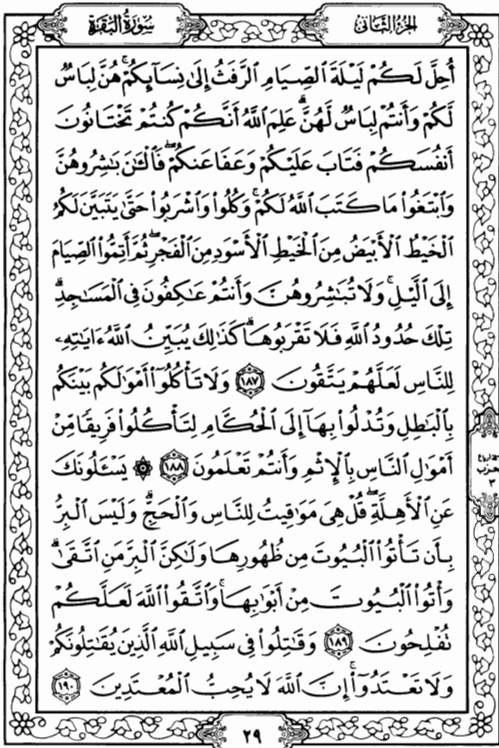 الجزء الثاني
سورة البقرة
أُحِلَّ لَكُمْ لَيْلَةَ ٱلصِّيَامِ ٱلرَّفَثُ إِلَىٰ نِسَآئِكُمْ ۚ هُنَّ لِبَاسٌ
لَّكُمْ وَأَنتُمْ لِبَاسٌ لَّهُنَّ ۗ عَلِمَ ٱللَّهُ أَنَّكُمْ كُنتُمْ تَخْتَانُونَ
أَنفُسَكُمْ فَتَابَ عَلَيْكُمْ وَعَفَا عَنكُمْ ۖ فَٱلْـَٰٔنَ بَٰشِرُوهُنَّ
وَٱبْتَغُوا۟ مَا كَتَبَ ٱللَّهُ لَكُمْ ۚ وَكُلُوا۟ وَٱشْرَبُوا۟ حَتَّىٰ يَتَبَيَّنَ لَكُمُ
ٱلْخَيْطُ ٱلْأَبْيَضُ مِنَ ٱلْخَيْطِ ٱلْأَسْوَدِ مِنَ ٱلْفَجْرِ ۖ ثُمَّ أَتِمُّوا۟ ٱلصِّيَامَ
إِلَى ٱلَّيْلِ ۚ وَلَا تُبَٰشِرُوهُنَّ وَأَنتُمْ عَٰكِفُونَ فِى ٱلْمَسَٰجِدِ ۗ
تِلْكَ حُدُودُ ٱللَّهِ فَلَا تَقْرَبُوهَا ۗ كَذَٰلِكَ يُبَيِّنُ ٱللَّهُ ءَايَٰتِهِۦ
لِلنَّاسِ لَعَلَّهُمْ يَتَّقُونَ ١٨٧ وَلَا تَأْكُلُوٓا۟ أَمْوَٰلَكُم بَيْنَكُم
بِٱلْبَٰطِلِ وَتُدْلُوا۟ بِهَآ إِلَى ٱلْحُكَّامِ لِتَأْكُلُوا۟ فَرِيقًا مِّنْ
أَمْوَٰلِ ٱلنَّاسِ بِٱلْإِثْمِ وَأَنتُمْ تَعْلَمُونَ ١٨٨ ۞ يَسْـَٔلُونَكَ
عَنِ ٱلْأَهِلَّةِ ۖ قُلْ هِىَ مَوَٰقِيتُ لِلنَّاسِ وَٱلْحَجِّ ۗ وَلَيْسَ ٱلْبِرُّ
بِأَن تَأْتُوا۟ ٱلْبُيُوتَ مِن ظُهُورِهَا وَلَٰكِنَّ ٱلْبِرَّ مَنِ ٱتَّقَىٰ ۗ
وَأْتُوا۟ ٱلْبُيُوتَ مِنْ أَبْوَٰبِهَا ۚ وَٱتَّقُوا۟ ٱللَّهَ لَعَلَّكُمْ
تُفْلِحُونَ ١٨٩ وَقَٰتِلُوا۟ فِى سَبِيلِ ٱللَّهِ ٱلَّذِينَ يُقَٰتِلُونَكُمْ
وَلَا تَعْتَدُوٓا۟ ۚ إِنَّ ٱللَّهَ لَا يُحِبُّ ٱلْمُعْتَدِينَ ١٩٠
حزب
٣
٢٩